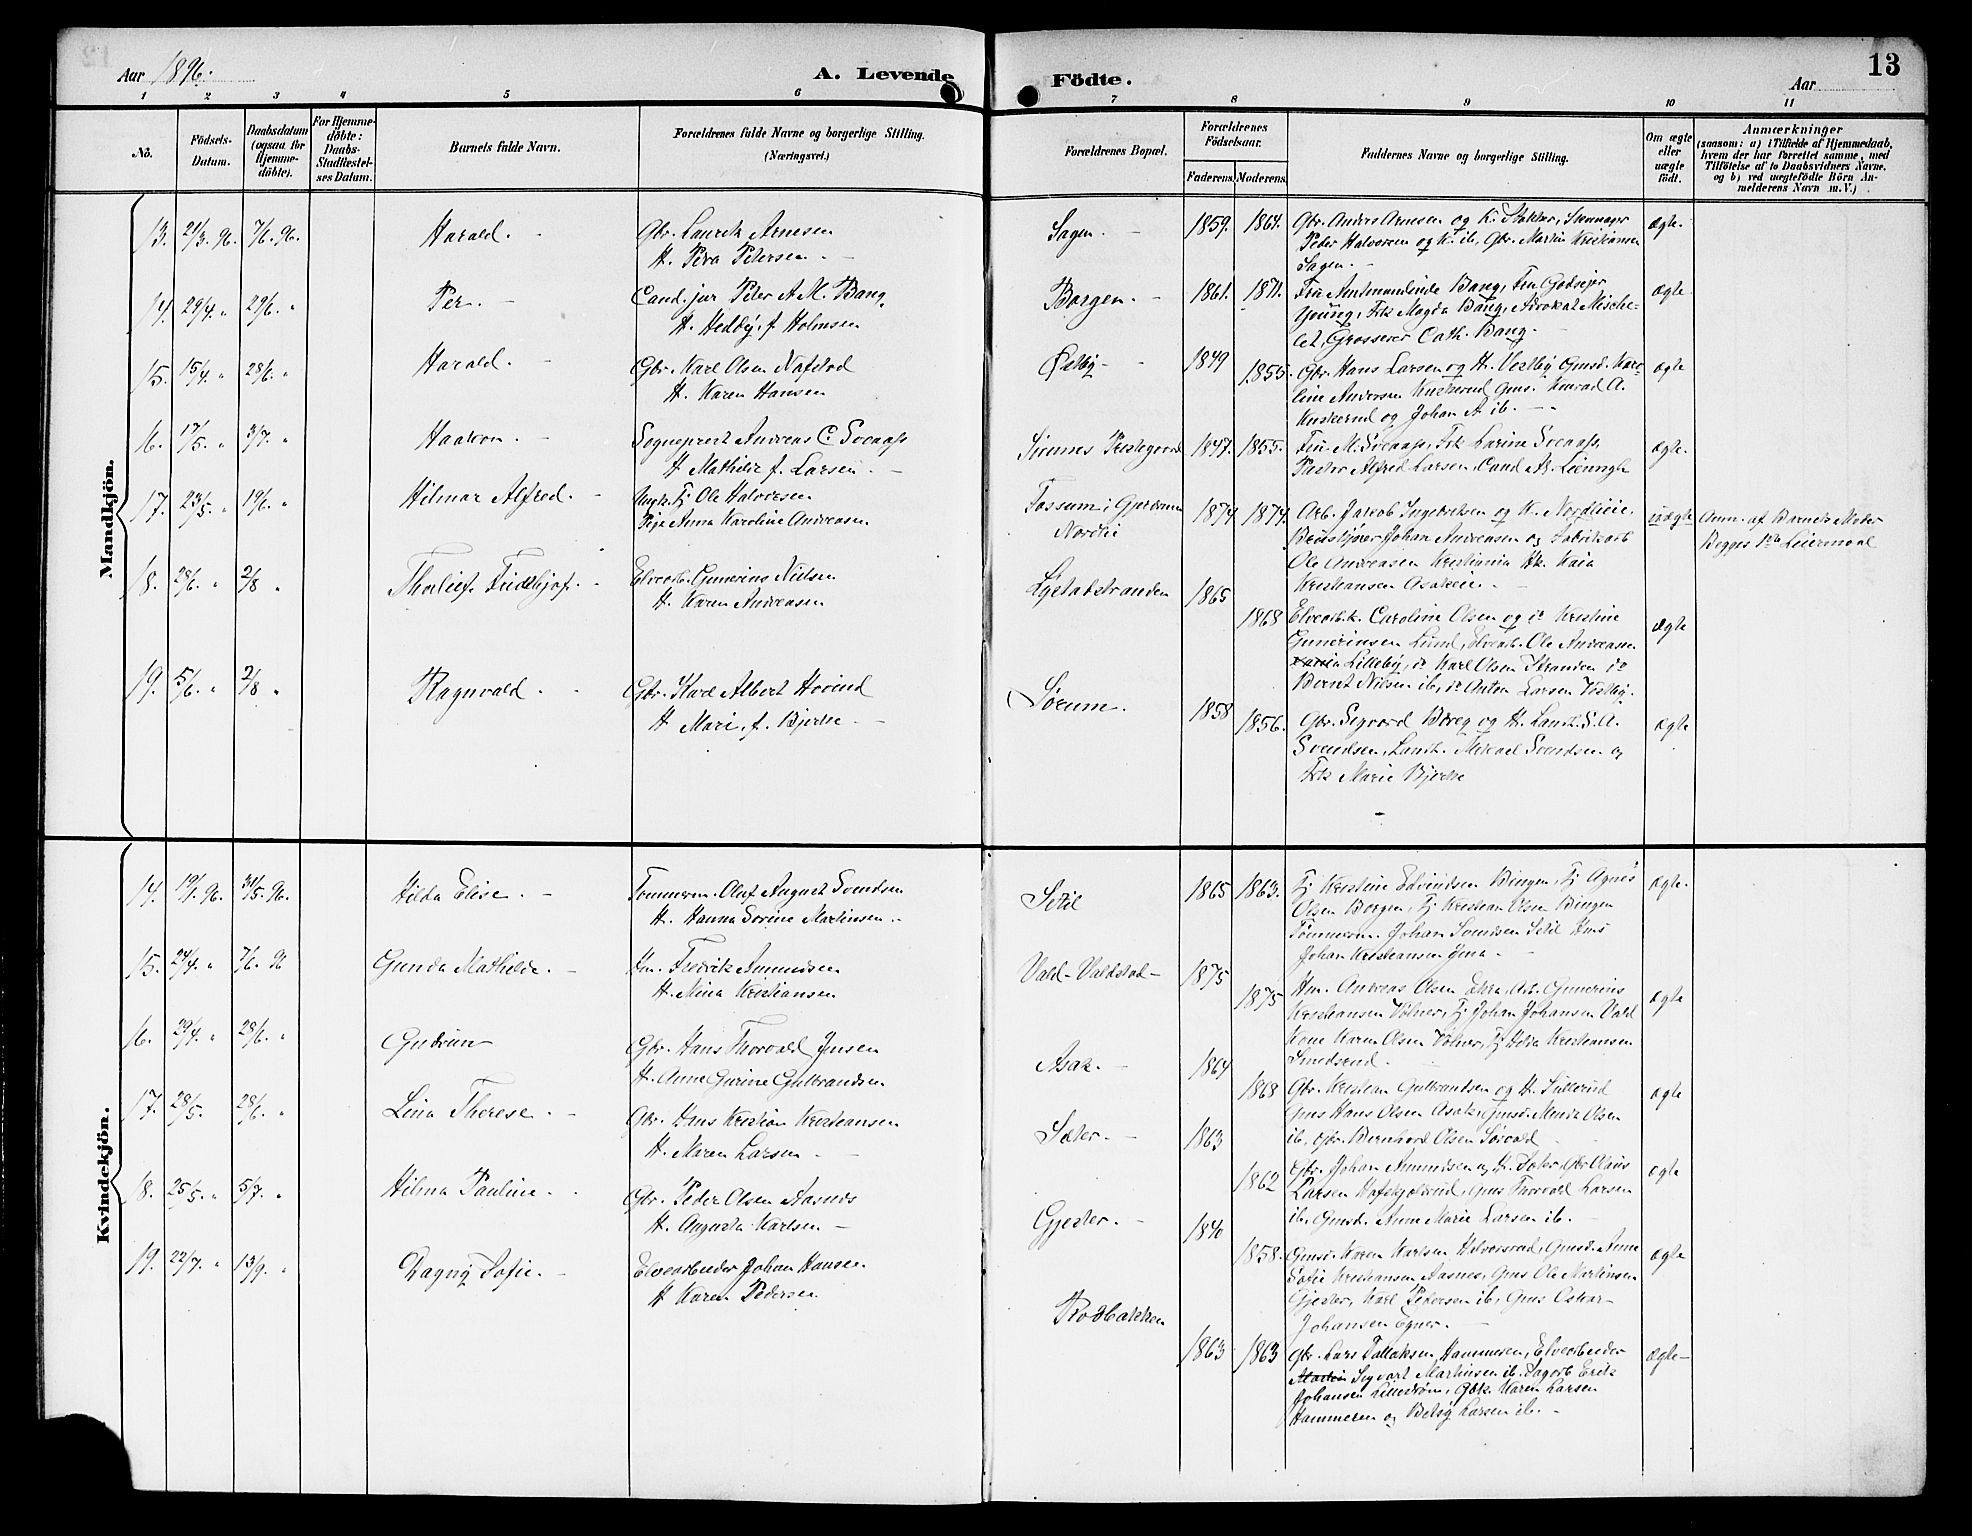 Aar 1896.
A. Levende
Födte.
Aar
13
1 2 3 4 5 6 7 8 9 10 11
No.
Födsels-Datum.
Daabsdatum (ogsaa for Hjemme-döbte).
For Hjemme-döbte: Daabs-Stadfæstel-ses Datum.
Barnets fulde Navn.
Forældrenes fulde Navne og borgerlige Stilling.
(Næringsvei.)
Forældrenes Bopæl.
Forældrenes Födselsaar.
Faderens. Moderens.
Faddernes Navne og borgerlige Stilling.
Om ægte eller uægte födt.
Anmærkninger
(saasom: a) i Tilfælde af Hjemmedaab,
hvem der har forrettet samme, med
Tilföielse af to Daabsvidners Navne,
og b) ved uægtefödte Börn An-
melderens Navn m. V.)
Mandkjön.
13. 21/3. 96. 7/6. 96. Harald. Gbr. Lauritz Arnesen
H. Petra Petersen
Sagen. 1859. 1864. Gbr. Anders Arnesen og K.
Peder Halvorsen og K. ib, Gbr. Martin Kristiansen
Sagen. ægte.
14. 29/4. " 29/6. " Per. Cand. jur Peter A. M. Bang
H. Hedby, f. Holmsen
Borgen. 1861. 1871. Fru Amtmandinde Bang, Fru Godseier
Young, Frk Magda Bang, Advokat Miche-
let, Grosserer Cath. Bang. ægte
15. 15/4. " 28/6. " Harald. Gbr. Karl Olsen Nafstad
H. Karen Hansen
Østby 1849 1855. Gbr. Hans Larsen og H. Vestby Gmsd. Kare-
line Andersen Kuskerud Gms. Konrad A.
Kuskerud og Johan A ib. ægte
16. 17/5. " 3/7. " Haakon. Sogneprest Andreas C. Svenaas
H Mathilde f. Larsen.
Sørums Prestegaard 1847. 1855. Fru M. Svenaas, Frk Larine Svenaas,
Pastor Alfred Larsen, Cand ægte.
17. 23/5. " 19/6. " Hilmar Alfred. Ungk. Tj Ole Halvorsen
Pige Anna Karoline Andreasen
Fossum i Gjerdrum
Nordlie
1874 1874. Arb. Jacob Ingebretsen og K. Nordlieie.
Johan Andreasen og Fabrikarb
Ole Andreasen Kristiania Hk. Kaia
Kristiansen Asakeie. uægte Anm. af Barnets Moder
Begges 1ste Leiermaal
18. 28/6. " 2/8 " Thorleif Fridthjof. Elvearb. Gunerius Nielsen
H. Karen Andreasen
Lystadstranden 1865 1868 Elvearb.k. Caroline Olsen og do Kristine
Gunerinsen Lund, Elvearb. Ole Andreasen
Lilleby, do Karl Olsen Stranden do
Bernt Nilsen ib, do Anton Larsen Vestby. ægte
19. 5/6. " 2/8 " Ragnvald. Gbr. Karl Albert Hovind
H Mari, f. Bjerke
Sørum. 1858 1856. Gbr. Sigvard Berg og H. Landh. S. A.
Svendsen, Landh. Mikael Svendsen og
Frk Marie Bjerke ægte
Kvindekjön.
14. 19/1. 96. 31/5. 96. Hilda Elise. Tømmerm. Olaf August Svendsen
H. Hanna Sorine Martinsen
Setil 1865 1863. Tj Kristine Edvindsen Bingen, Tj Agnes
Olsen Borgen, Tj Kristian Olsen Bingen
Tømmerm. Johan Svendsen Setil Hms
Johan Kristiansen ægte.
15. 24/4. " 7/6. 96 Gunda Mathilde. Hm. Fredrik Amundsen
H. Mina Kristiansen
Vald-Valdstad 1875 1875 Hm. Andreas Olsen Arb. Gunerius
Kristiansen Vølner, Tj Johan Johansen Vald
Kone Karen Olsen Vølner, Tj Helda Kristiansen
Smedsrud. ægte
16. 29/4. " 28/6. " Gudrun Gbr. Hans Thorvald Jensen
H. Anne Gurine Gulbrandsen
Asak. 1864 1868 Gbr. Kristian Gulbrandsen og H. Sullerud
Gms Hans Olsen Asak, Gmsd. Olsen
ib, Gbr. Bernhard Olsen Sørvald ægte
17. 28/5. 28/6. " Lina Therese. Gbr. Hans Kristian Kristiansen
H. Maren Larsen
Sæter. 1863 1862 Gbr. Johan Amundsen og H. Gbr Olaus
Larsen Gms Thorvald Larsen
ib. Gmsd. Anne Marie Larsen ib. ægte
18. 25/5. " 5/7. " Hilma Pauline. Gbr. Peder Olsen Aasnes
H. Augusta Karlsen
Gjester. 1840 1858. Gmsd. Karen Karlsen Halvorsrud, Gmsd. Anne
Sofie Kristiansen Aasnes, Gms Ole Martinsen
Gjester, Karl Pedersen ib, Gms Oskar
Johansen Egner. ægte
19. 22/7. " 13/9. " Dagny Sofie. Elvearbeider Johan Hansen
H Karen Pedersen
Rodbakken 1863 1863 Gbr. Lars Tollaksen, Hammeren, Elvearbeider
Sigvart Martinsen ib. Sagarb Erik
Johansen Lundstrøm, Gbk. Karen Larsen
Hammeren og Betsy Larsen ib. ægte